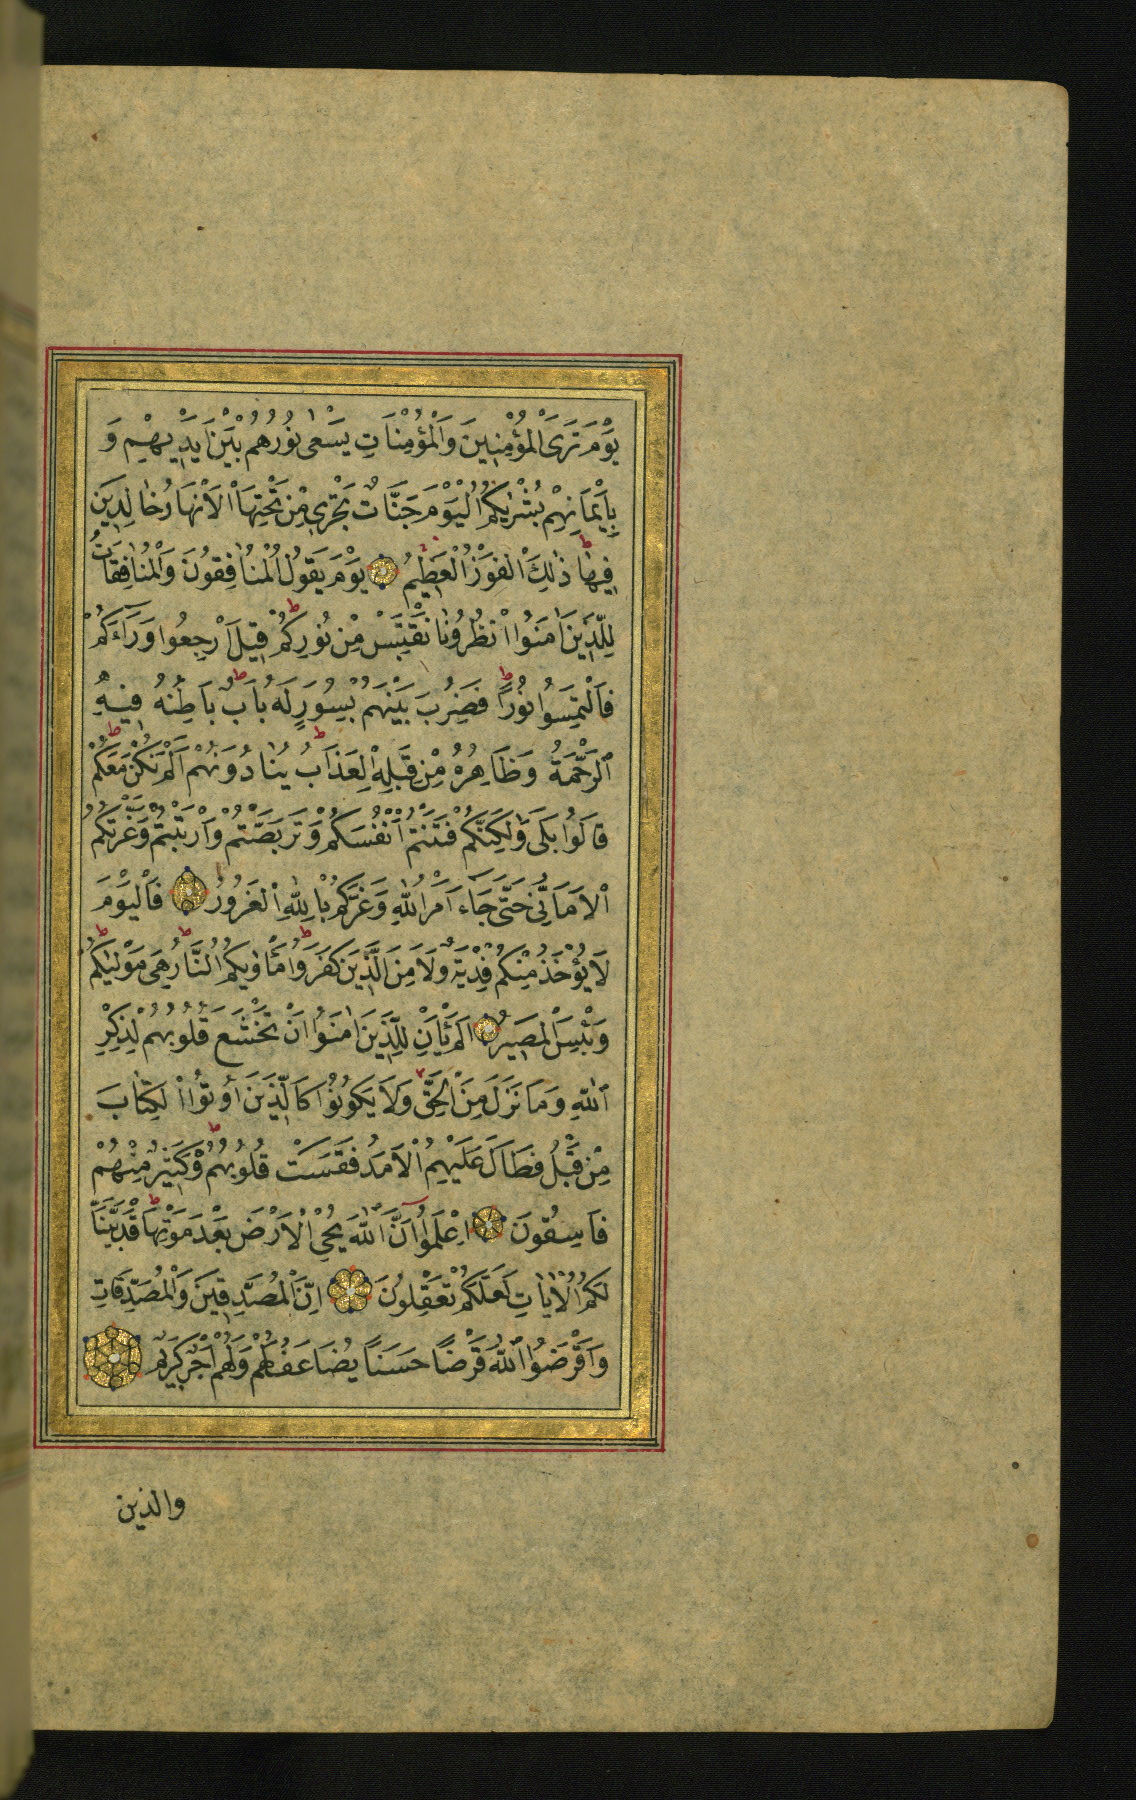 يَوْمَ تَرَى الْمُؤْمِنِينَ وَالْمُؤْمِنَاتِ يَسْعٰى نُورُهُمْ بَيْنَ اَيْدِيهِمْ وَ
بِاَيْمَانِهِمْ بُشْرٰيكُمُ الْيَوْمَ جَنَّاتٌ تَجْرِي مِنْ تَحْتِهَا الْاَنْهَارُ خَالِدِينَ
فِيهَا ط ذٰلِكَ الْفَوْزُ الْعَظِيمُ يَوْمَ يَقُولُ الْمُنَافِقُونَ وَالْمُنَافِقَاتُ
لِلَّذِينَ اٰمَنُوا انْظُرُونَا نَقْتَبِسْ مِنْ نُورِكُمْ ط قِيلَ ارْجِعُوا وَرَاۤءَكُمْ
فَالْتَمِسُوا نُورًا ط فَضُرِبَ بَيْنَهُمْ بِسُورٍ لَهُ بَابٌ ط بَاطِنُهُ فِيهِ
الرَّحْمَةُ وَظَاهِرُهُ مِنْ قِبَلِهِ الْعَذَابُ ط يُنَادُونَهُمْ اَلَمْ نَكُنْ مَعَكُمْ ط
قَالُوا بَلٰى وَلٰكِنَّكُمْ فَتَنْتُمْ اَنْفُسَكُمْ وَتَرَبَّصْتُمْ وَارْتَبْتُمْ وَغَرَّتْكُمُ
الْاَمَانِيُّ حَتّٰى جَاۤءَ اَمْرُ اللّٰهِ وَغَرَّكُمْ بِاللّٰهِ الْغَرُورُ فَالْيَوْمَ
لَا يُؤْخَذُ مِنْكُمْ فِدْيَةٌ وَلَا مِنَ الَّذِينَ كَفَرُوا ط مَأْوٰيكُمُ النَّارُ ط هِيَ مَوْلٰيكُمْ ط
وَبِئْسَ الْمَصِيرُ اَلَمْ يَأْنِ لِلَّذِينَ اٰمَنُوا اَنْ تَخْشَعَ قُلُوبُهُمْ لِذِكْرِ
اللّٰهِ وَمَا نَزَلَ مِنَ الْحَقِّ وَلَا يَكُونُوا كَالَّذِينَ اُوتُوا الْكِتَابَ
مِنْ قَبْلُ فَطَالَ عَلَيْهِمُ الْاَمَدُ فَقَسَتْ قُلُوبُهُمْ ط وَكَثِيرٌ مِنْهُمْ
فَاسِقُونَ اِعْلَمُوا اَنَّ اللّٰهَ يُحْيِ الْاَرْضَ بَعْدَ مَوْتِهَا ط قَدْ بَيَّنَّا
لَكُمُ الْاٰيَاتِ لَعَلَّكُمْ تَعْقِلُونَ اِنَّ الْمُصَّدِّقِينَ وَالْمُصَّدِّقَاتِ
وَاَقْرَضُوا اللّٰهَ قَرْضًا حَسَنًا يُضَاعَفُ لَهُمْ وَلَهُمْ اَجْرٌ كَرِيمٌ
والذين